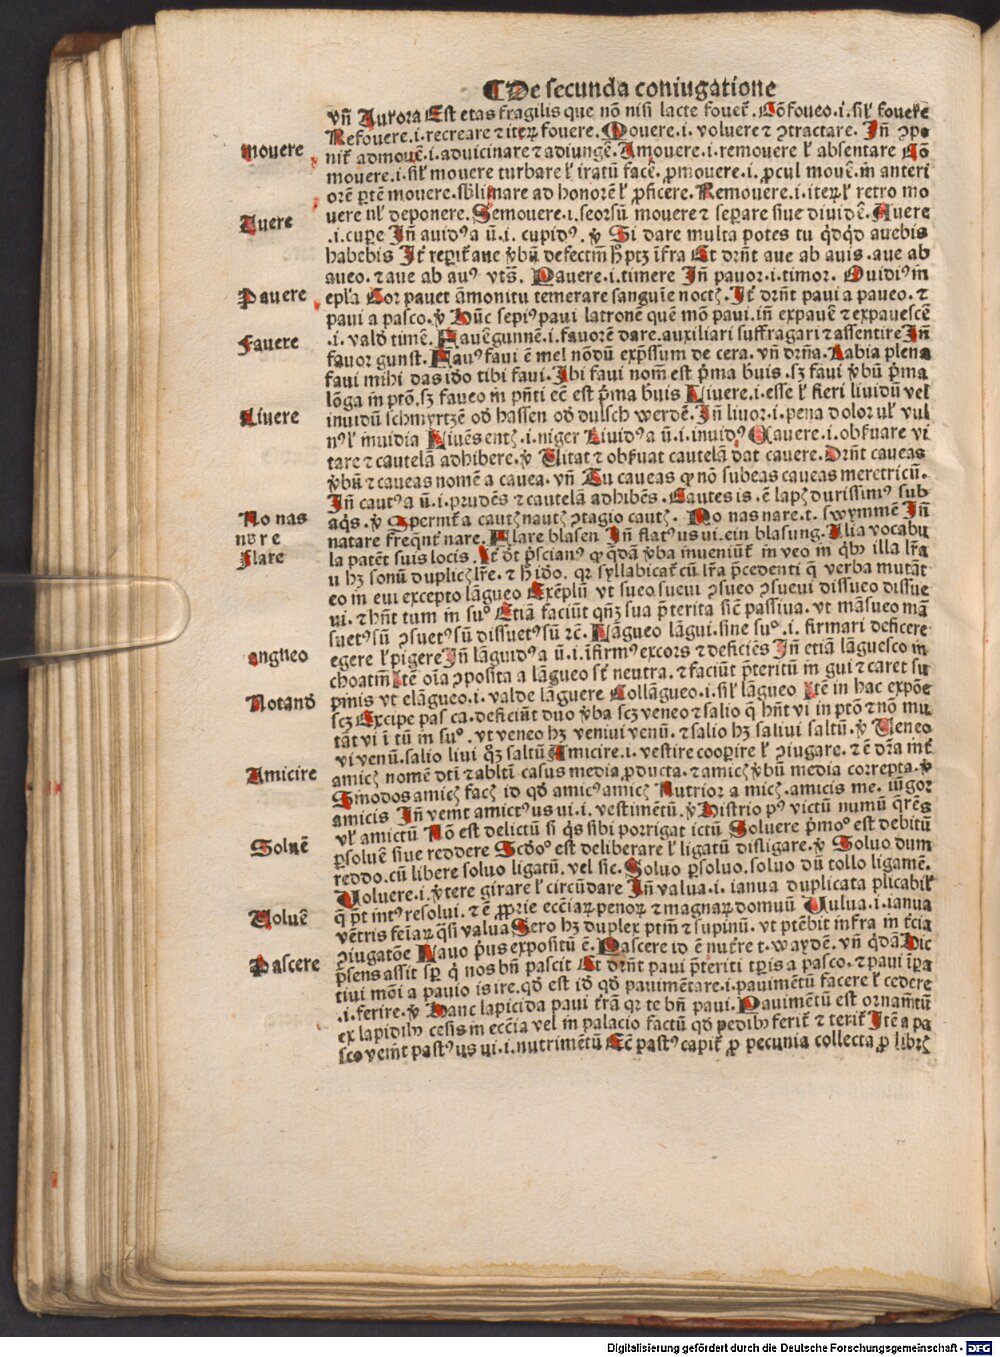 De secunda coniugatione
vñ Aurora Est etas fragilis que nō nisi lacte fouet̃. Cōfoueo.i.sil̃ fouere
Refouere.i.recreare ⁊ iteꝝ fouere. Mouere.i. voluere ⁊ ꝯtractare. Iñ ꝯpo
mouere
nit̃ admouē.i.aduicinare ⁊ adiungē. Amouere.i.remouere ł absentare Cō
mouere.i.sil̃ mouere turbare ł iratū facē. ꝓmouere.i. ꝓcul mouē. in anteri
orē ꝑtē mouere. sb̃limare ad honorē ł ꝓficere. Remouere.i.iteꝝ ł retro mo
Auere
uere ul̃ deponere. Semouere.i.seorsū mouere ⁊ seꝑare siue diuidē. Auere
.i.cuꝑe Iñ auidꝰ a ū.i. cupidꝰ. ꝟ Si dare multa potes tu qd̓qd̓ auebis
habebis It̃ reꝑit̃ aue ꝟbū defectiũ ħ ptꝫ īfra Et drñt aue ab auis. aue ab
aueo. ⁊ aue ab auꝰ vts̃. Pauere.i.timere Iñ pauor.i.timor. Ouidiꝰ in
Pauere
epl̃a Cor pauet āmonitu temerare sanguīe noctꝭ. It̃ drñt paui a paueo. ⁊
paui a pasco. ꝟ Hūc sepiꝰ paui latronē quē mō paui. iñ expauē ⁊ expauescē
Fauere
.i. valď timē. Fauē gunnē.i.fauorē dare. auxiliari suffragari ⁊ assentire Iñ
fauor gunst. Fauꝰ faui ē mel nōdū exp̃ssum de cera. vñ drñia. Labia plena
faui mihi das iďo tibi faui. Ibi faui nom̃ est p̃ma b̃uis. sꝫ faui ꝟbū p̃ma
lōga in ptō. sꝫ faueo in pñti eē est p̃ma b̃uis Liuere.i.esse ł fieri liuidū vel
Liuere
inuidū schmyrtzē oď hassen oď dulsch werdē. Iñ liuor.i.pena dolor ul̃ vul
nꝰ ł inuidia Liuēs entꝭ.i.niger Liuidꝰ a ū.i.inuidꝰ Cauere.i.obs̃uare vi
tare ⁊ cautelā adhibere. ꝟ Vitat ⁊ obs̃uat cautelā dat cauere. Drñt caueas
ꝟbū ⁊ caueas nomē a cauea. vñ Tu caueas qꝫ nō subeas caueas meretricū.
Iñ cautꝰ a ū.i.prudēs ⁊ cautelā adhibēs. Cautes is. ē lapꝭ durissimꝰ sub
No nas
aq̃s. ꝟ Spernit̃ a cautꝭ nautꝭ ꝯtagio cautꝭ. No nas nare. t. swymmē Iñ
nare
natare freq̃nt̃ nare. Flare blasen Iñ flatꝰ us ui. ein blasung. Alia vocabu
Flare
la patēt suis locis. It̃ ďt p̃scianꝰ qꝫ q̃dā ꝟba inueniūt̃ in veo in qͥbꝫ illa lr̃a
u hꝫ sonū duplicꝭ lr̃e. ⁊ ħ iďo. qꝛ syllabicat̃ cū lr̃a p̃cedenti q̄ verba mutāt
eo in eui excepto lāgueo Exēplū vt sueo sueui ꝯsueo ꝯsueui dissueo dissue
ui. ⁊ hñt tum in suº Etiā faciūt qñꝫ sua p̃terita sic̃ passiua. vt māsueo mā
suetꝰ sū ꝯsuetꝰ sū dissuetꝰ sū ⁊c̃. Lāgueo lāgui. sine suº.i. firmari deficere
angueo
egere ł pigere Iñ lāguidꝰ a ū.i.īfirmꝰ excors ⁊ deficiēs Iñ etiā lāguesco in
choatiũ Itē oīa ꝯposita a lāgueo st̃ neutra. ⁊ faciūt p̃teritū in gui ⁊ caret su
Notand̓
pinis vt elāgueo.i. valde lāguere Collāgueo.i.sil̃ lāgueo Itē in hac expōe
scꝫ Excipe pas ca. deficiūt duo ꝟba scꝫ veneo ⁊ salio q̄ hñt vi in ptō ⁊ nō mu
tāt vi ī tū in suº. vt veneo hꝫ veniui venū. ⁊ salio hꝫ saliui saltū. ꝟ Veneo
vi venū. salio liui qꝫ saltū Amicire.i. vestire cooꝑire ł ꝯiugare. ⁊ ē dr̃a int̃
Amicire
amicꝭ nomē dti ⁊ abltī casus media ꝓducta. ⁊ amicꝭ ꝟbū media correpta. ꝟ
Smodos amicꝭ facꝭ id qď amicꝰ amicꝭ Nutrior a micꝭ. amicis me. iūgor
amicis Iñ venit amictꝰ us ui.i. vestimētū. ꝟ Histrio pꝰ victū numū q̃rēs
ul̃ amictū Nō est delictū si q̃s sibi porrigat ictū Soluere p̃moº est debitū
Soluē
ꝑsoluē siue reddere Scďoº est deliberare ł ligatū disligare. ꝟ Soluo dum
reddo. cū libere soluo ligatū. vel sic. Soluo ꝑsoluo. soluo dū tollo ligamē.
Voluere.i.ꝟtere girare ł circūdare Iñ valua.i. ianua duplicata plicabil̃
Voluē
q̄ p̃t intꝰ resolui. ⁊ ē ꝓprie eccīaꝝ penoꝝ ⁊ magnaꝝ domuū Vulua.i.ianua
vētris feīaꝝ q̃si valua Sero hꝫ duplex ptm̃ ⁊ supinū. vt ptēbit infra in t̃cia
ꝯiugatōe Nauo p̃us expositū ē. Pascere id ē nut̃re t. waydē. vñ q̃dā Hic
Pascere
p̃sens assit sꝑ q̄ nos bñ pascit Et drñt paui p̃teriti tꝑis a pasco. ⁊ paui īꝑa
tiui mōi a pauio is ire. qď est id̓ qď pauimētare.i. pauimētū facere ł cedere
.i. ferire. ꝟ Hanc lapicida paui t̃rā qꝛ te bñ paui. Pauimētū est ornam̃tū
ex lapidibꝫ cesis in eccīa vel in palacio factū qď pedibꝫ ferit̃ ⁊ terit̃ Itē a pa
sco venit pastꝰ us ui.i.nutrimētū Eē pastꝰ capit̃ ꝓ pecunia collecta ꝓ librꝭ
Digitalisierung gefördert durch die Deutsche Forschungsgemeinschaft - DFG